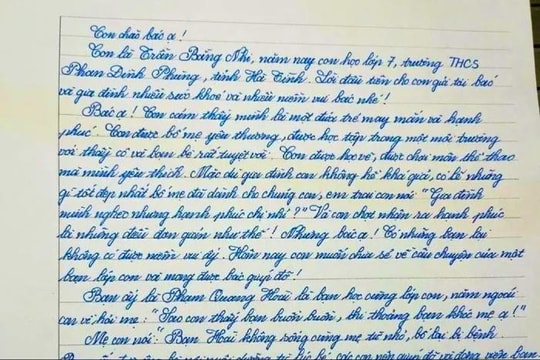 Con chào bác ạ!
Con là Trần Băng Nhi, năm nay con học lớp 7, trường THCS
Phan Đình Phùng, tỉnh Hà Tĩnh. Lời đầu tiên cho con gửi tới bác
và gia đình nhiều sức khoẻ và nhiều niềm vui bác nhé!
Bác ạ! Con cảm thấy mình là một đứa trẻ may mắn và hạnh
phúc. Con được bố mẹ yêu thương, được học tập trong một môi trường
với thầy cô và bạn bè rất tuyệt vời. Con được học vẽ, được chơi môn thể thao
mà mình yêu thích. Mặc dù gia đình con không hề khá giả, có lẽ những
gì tốt đẹp nhất bố mẹ đã dành cho chúng con, em trai con nói "Gia đình
mình nghèo nhưng hạnh phúc chị nhỉ?" Và con chợt nhận ra hạnh phúc
là những điều đơn giản như thế! Nhưng bác ạ! Có những bạn lại
không có được niềm vui ấy. Hôm nay con muốn chia sẻ về câu chuyện của một
bạn lớp con và mong được bác giúp đỡ!
Bạn ấy là Phạm Quang Hoài là bạn học cùng lớp con, năm ngoái
con về hỏi mẹ: "Sao con thấy bạn buồn buồn, thi thoảng bạn khóc mẹ ạ!"
Mẹ con nói: "Bạn Hoài không sống cùng mẹ từ nhỏ, bố lại bị bệnh